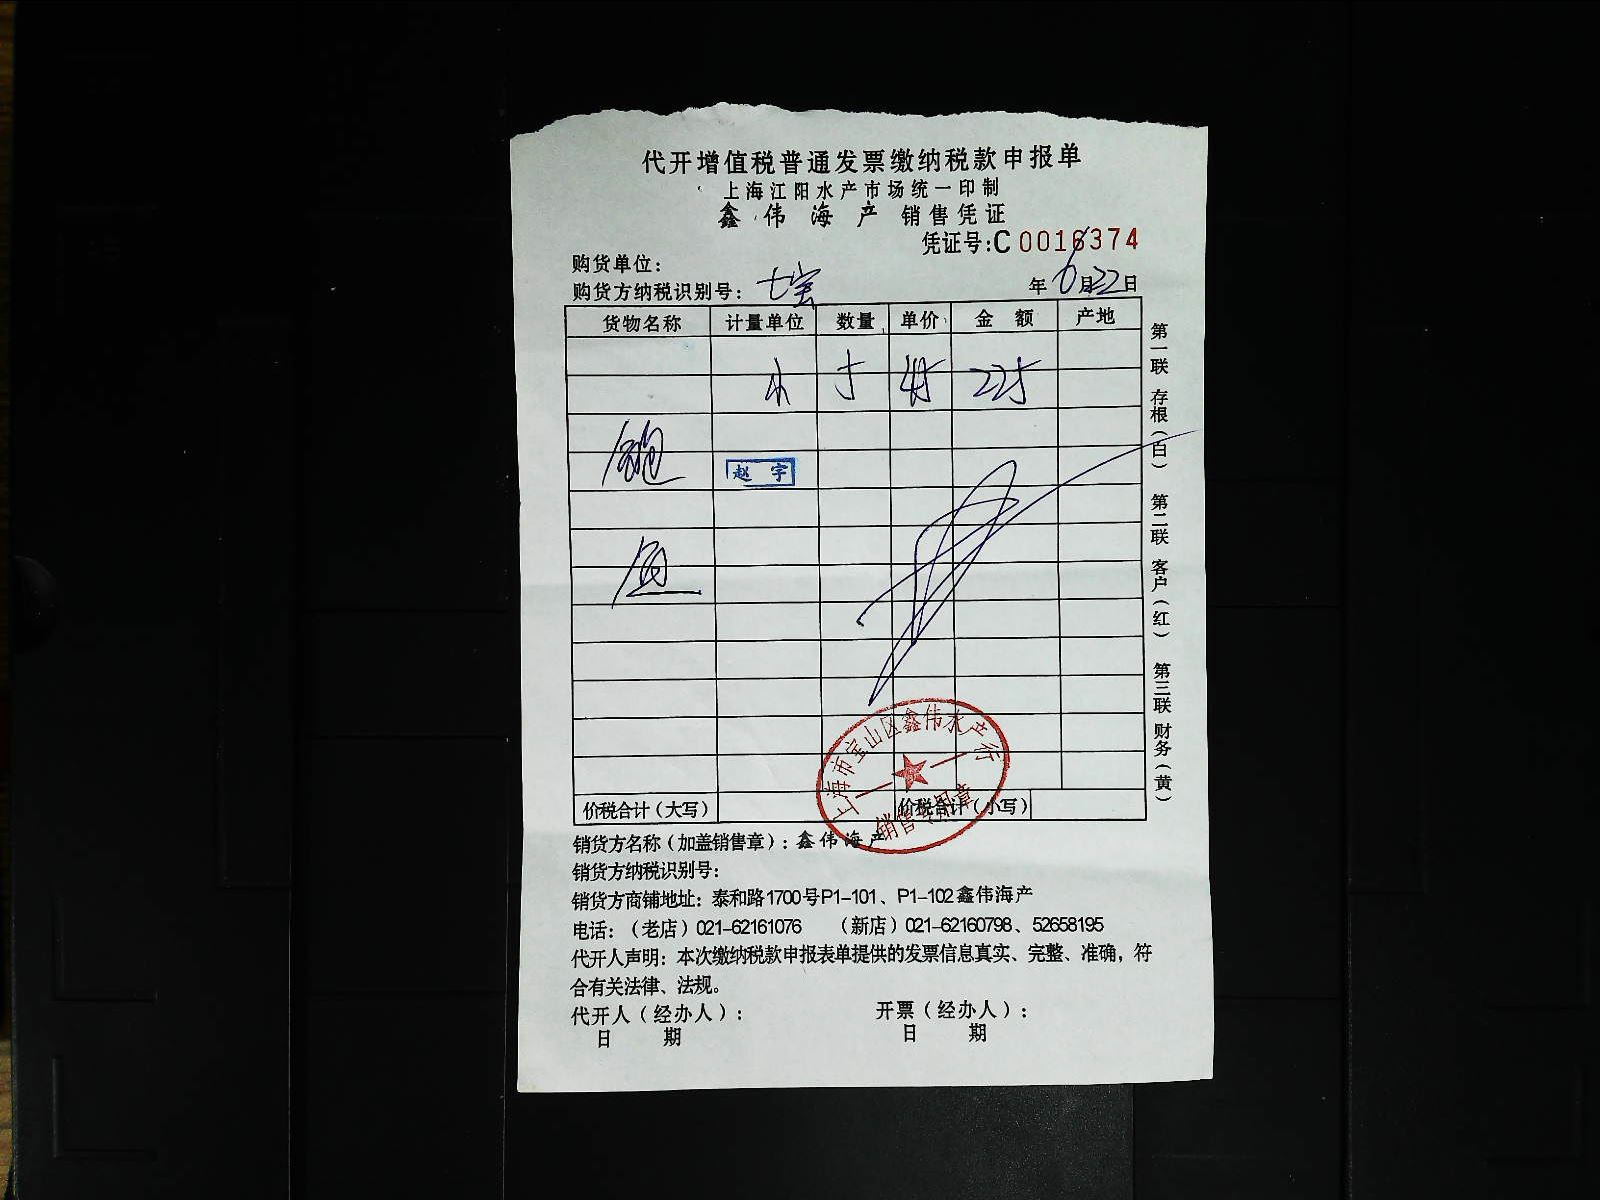 代开增值税普通发票缴纳税款申报单
上海江阳水产市场统一印制
鑫伟海产 销售凭证
凭证号:C 0016374
购货单位：
购货方纳税识别号：七宝 年6月22日
货物名称 计量单位 数量 单价 金额 产地
小 5 45 225
赵宇
鱼
上海市宝山区鑫伟水产行
销售专用章
价税合计（大写） 价税合计（小写）
第一联 存根（白） 第二联 客户（红） 第三联 财务（黄）
销货方名称（加盖销售章）：鑫伟海产
销货方纳税识别号：
销货方商铺地址：泰和路1700号P1-101、P1-102鑫伟海产
电话：（老店）021-62161076 （新店）021-62160798、52658195
代开人声明：本次缴纳税款申报表单提供的发票信息真实、完整、准确，符
合有关法律、法规。
代开人（经办人）： 开票（经办人）：
日 期 日 期